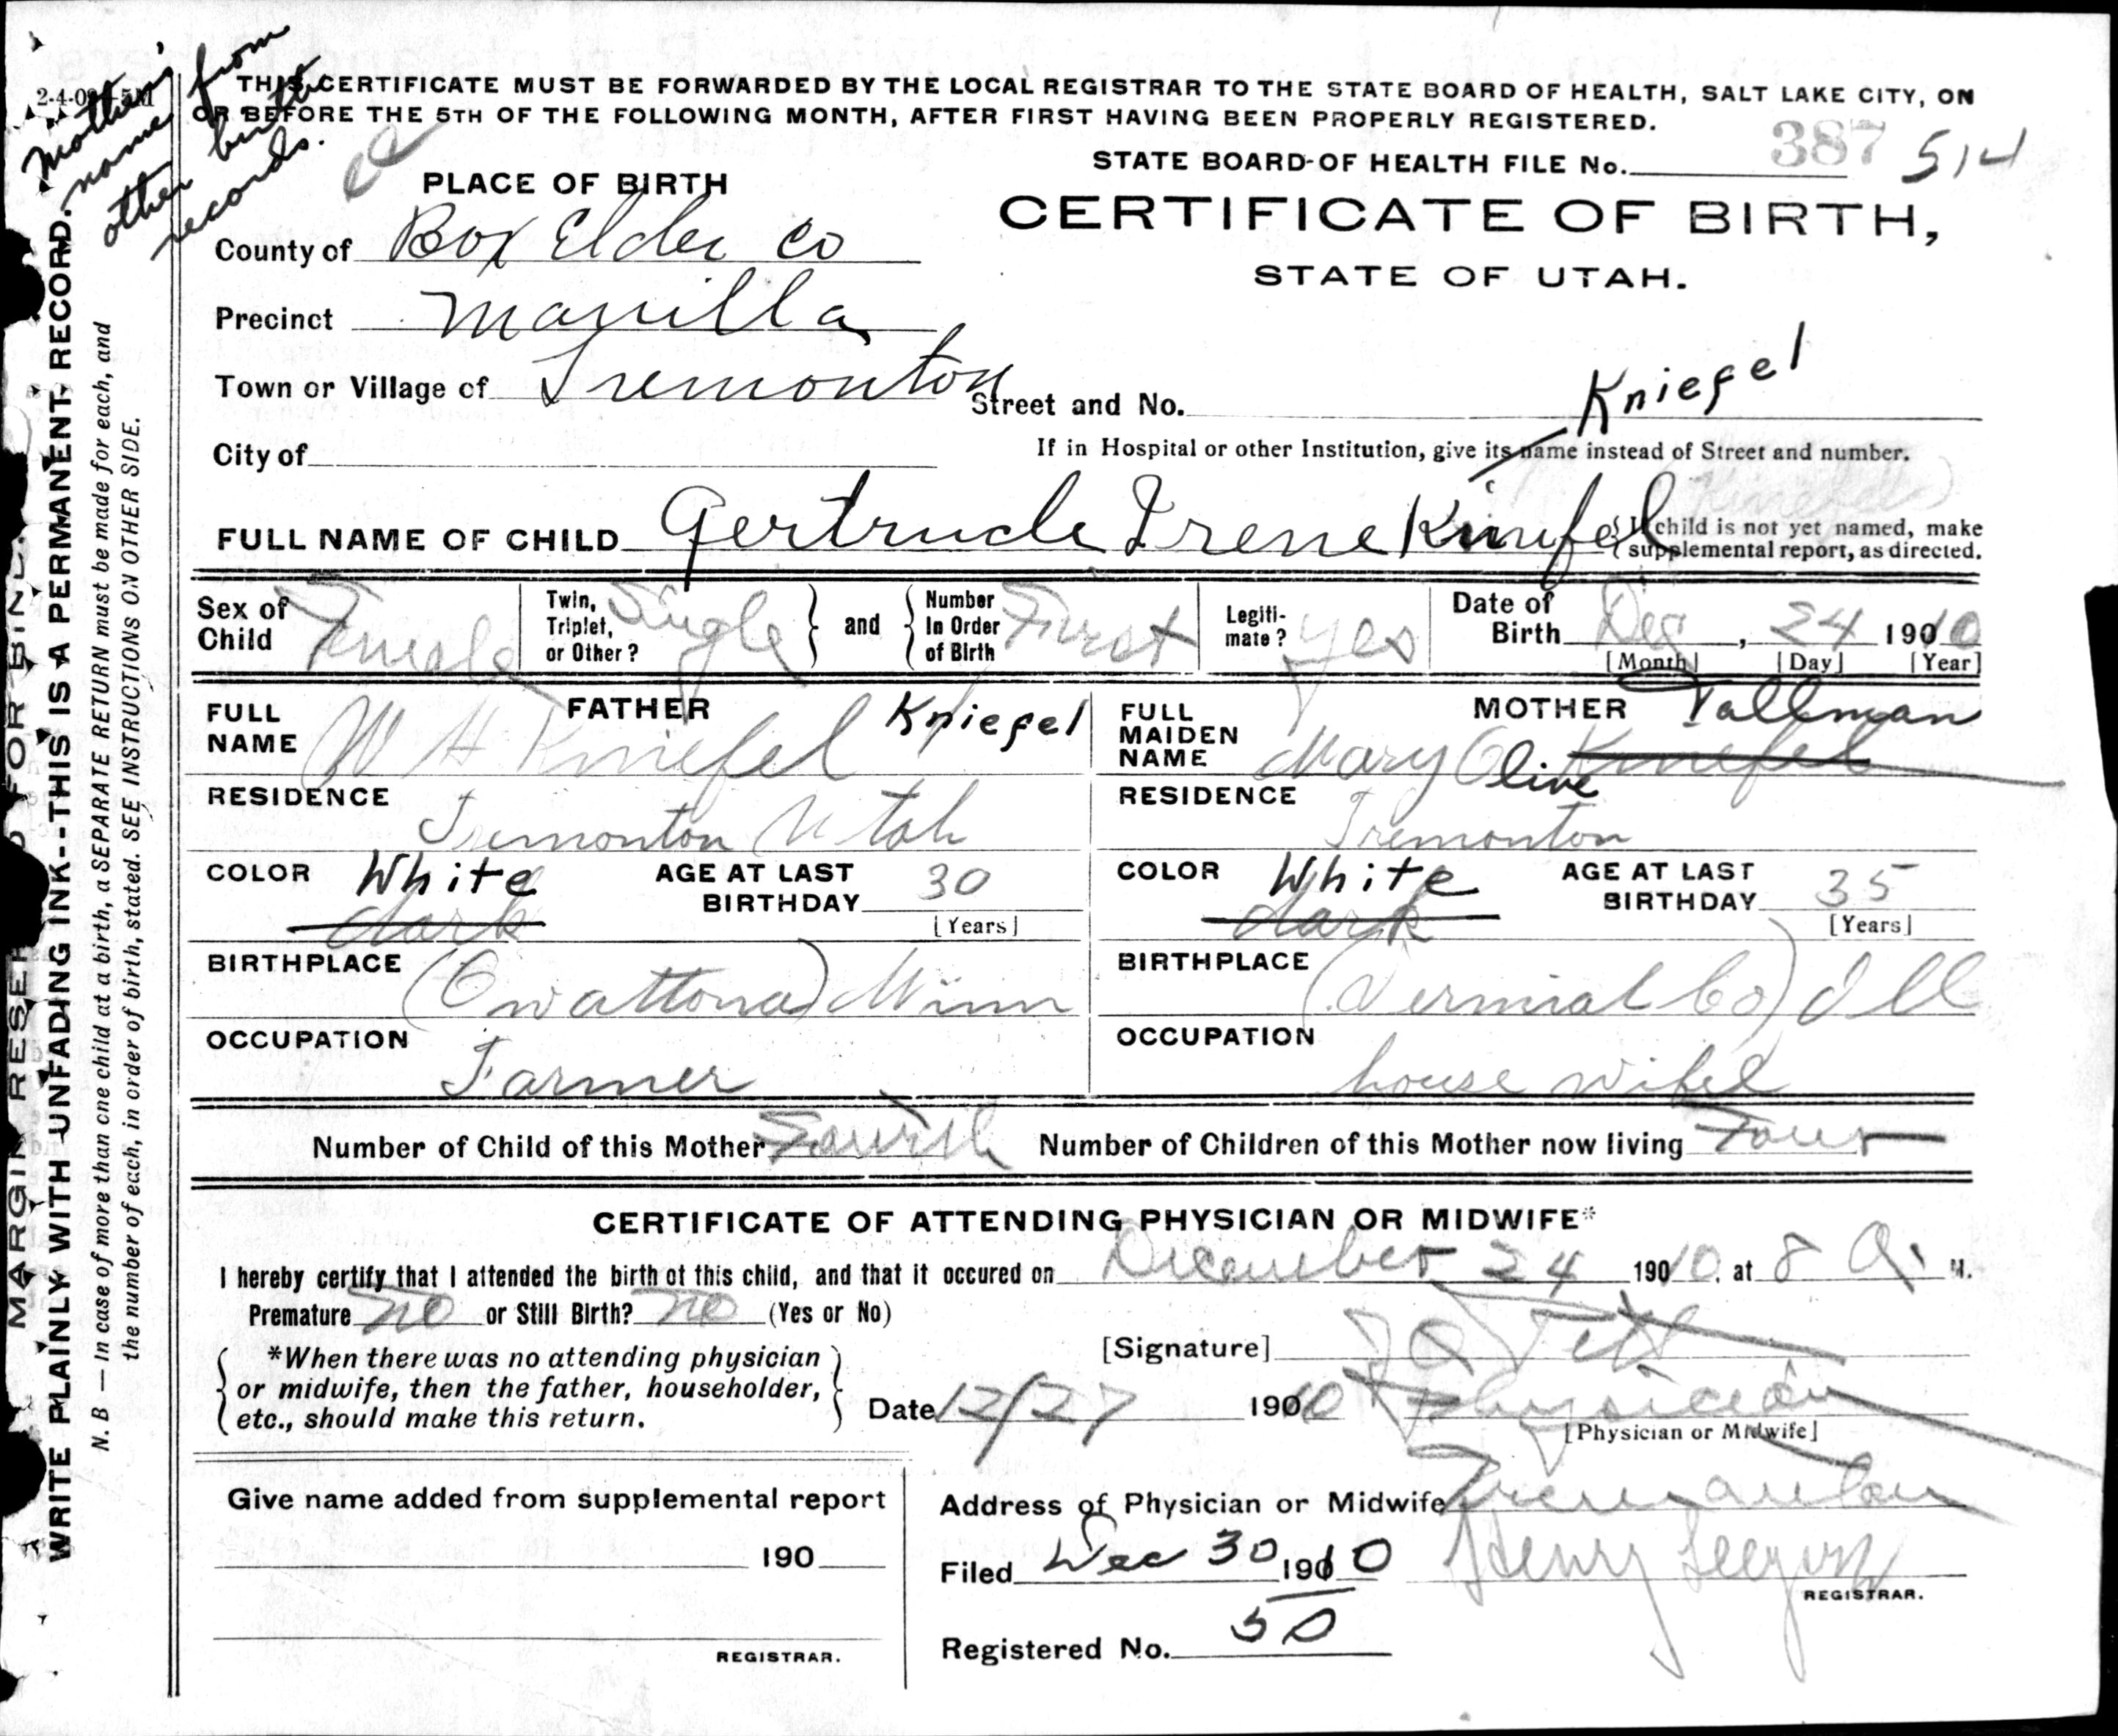 Mother's
name from
other birth
records.
2-4-09 5M
THIS CERTIFICATE MUST BE FORWARDED BY THE LOCAL REGISTRAR TO THE STATE BOARD OF HEALTH, SALT LAKE CITY, ON
OR BEFORE THE 5TH OF THE FOLLOWING MONTH, AFTER FIRST HAVING BEEN PROPERLY REGISTERED.
STATE BOARD OF HEALTH FILE No. 387 514
PLACE OF BIRTH
CERTIFICATE OF BIRTH,
STATE OF UTAH.
County of Box Elder Co
Precinct Manilla
Town or Village of Tremonton
Street and No.
Kniefel
City of
If in Hospital or other Institution, give its name instead of Street and number.
FULL NAME OF CHILD Gertrude Irene Kniefel
If child is not yet named, make
supplemental report, as directed.
Sex of Child Female
Twin, Triplet, or Other? Single
and
Number In Order of Birth First
Legiti-mate? yes
Date of Birth Dec, 24 1910
[Month] [Day] [Year]
FATHER
FULL NAME W H Kniefel Kniefel
RESIDENCE
Tremonton Utah
COLOR White dark
AGE AT LAST BIRTHDAY 30
[Years]
BIRTHPLACE
(Owattona) Minn
OCCUPATION
Farmer
MOTHER Tallman
FULL MAIDEN NAME Mary Olive Kniefel
RESIDENCE
Tremonton
COLOR White dark
AGE AT LAST BIRTHDAY 35
[Years]
BIRTHPLACE
(Vermial Co) Ill
OCCUPATION
house wife
Number of Child of this Mother Fourth Number of Children of this Mother now living Four
CERTIFICATE OF ATTENDING PHYSICIAN OR MIDWIFE*
I hereby certify that I attended the birth of this child, and that it occured on December 24 1910, at 8 A. M.
Premature no or Still Birth? no (Yes or No)
*When there was no attending physician
or midwife, then the father, householder,
etc., should make this return.
[Signature]
Date 12/27 1910 Physician
[Physician or Midwife]
Give name added from supplemental report
190
REGISTRAR.
Address of Physician or Midwife Tremonton
Filed Dec 30 1910 Henry
REGISTRAR.
Registered No. 50
MARGIN RESERVED FOR BINDING
WRITE PLAINLY WITH UNFADING INK--THIS IS A PERMANENT RECORD.
N. B — In case of more than one child at a birth, a SEPARATE RETURN must be made for each, and
the number of each, in order of birth, stated. SEE INSTRUCTIONS ON OTHER SIDE.